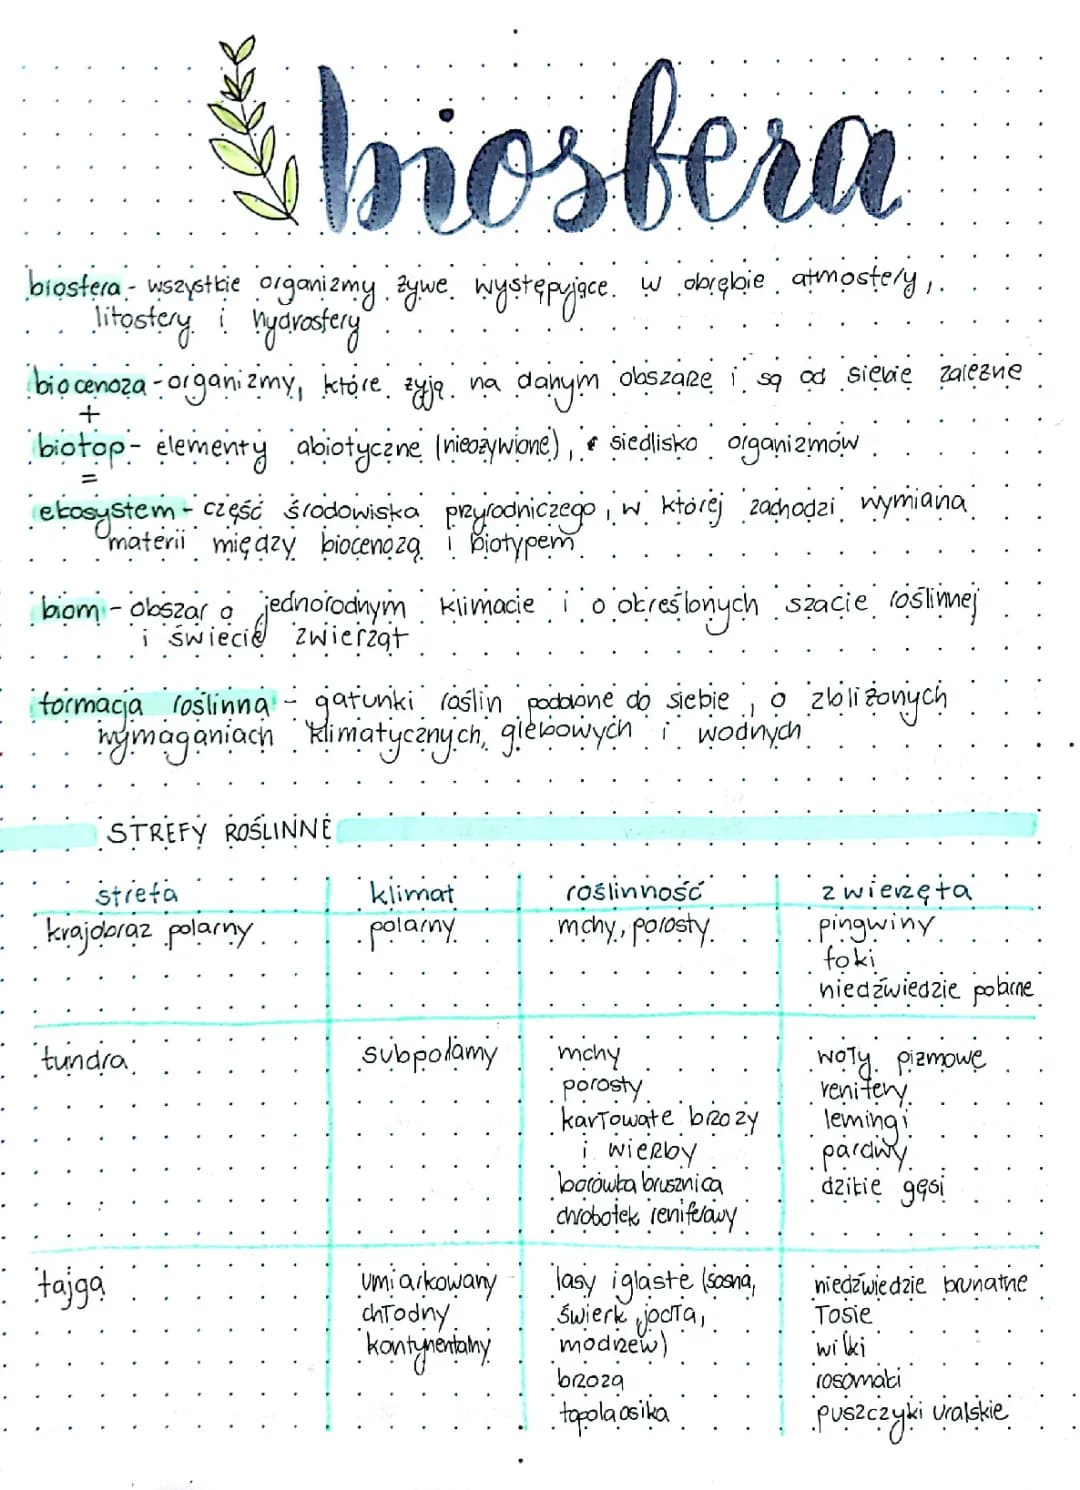 biosfera
biosfera - wszystkie organizmy żywe występujące w obrębie atmosfery,
litosfery i hydrosfery
biocenoza - organizmy, które żyją na danym obszarze i są od siebie zależne
+
biotop - elementy abiotyczne (nieożywione), siedlisko organizmów
=
ekosystem - część środowiska przyrodniczego, w której zachodzi wymiana
materii między biocenozą i biotypem
biom - obszar o jednorodnym klimacie i o określonych szacie roślinnej
i świecie zwierząt
formacja roślinna - gatunki roślin podobne do siebie, o zbliżonych
wymaganiach klimatycznych, glebowych i wodnych
STREFY ROŚLINNE
strefa klimat roślinność zwierzęta
krajobraz polarny polarny mchy, porosty pingwiny
foki
niedźwiedzie polarne
tundra subpolarny mchy woły piżmowe
porosty renifery
karłowate brzozy lemingi
i wierzby pardwy
borówka brusznica dzikie gęsi
chrobotek reniferowy
tajga umiarkowany lasy iglaste (sosna, niedźwiedzie brunatne
chłodny świerk, jodła, łosie
kontynentalny modrzew) wilki
brzoza rosomaki
topola osika puszczyki uralskie